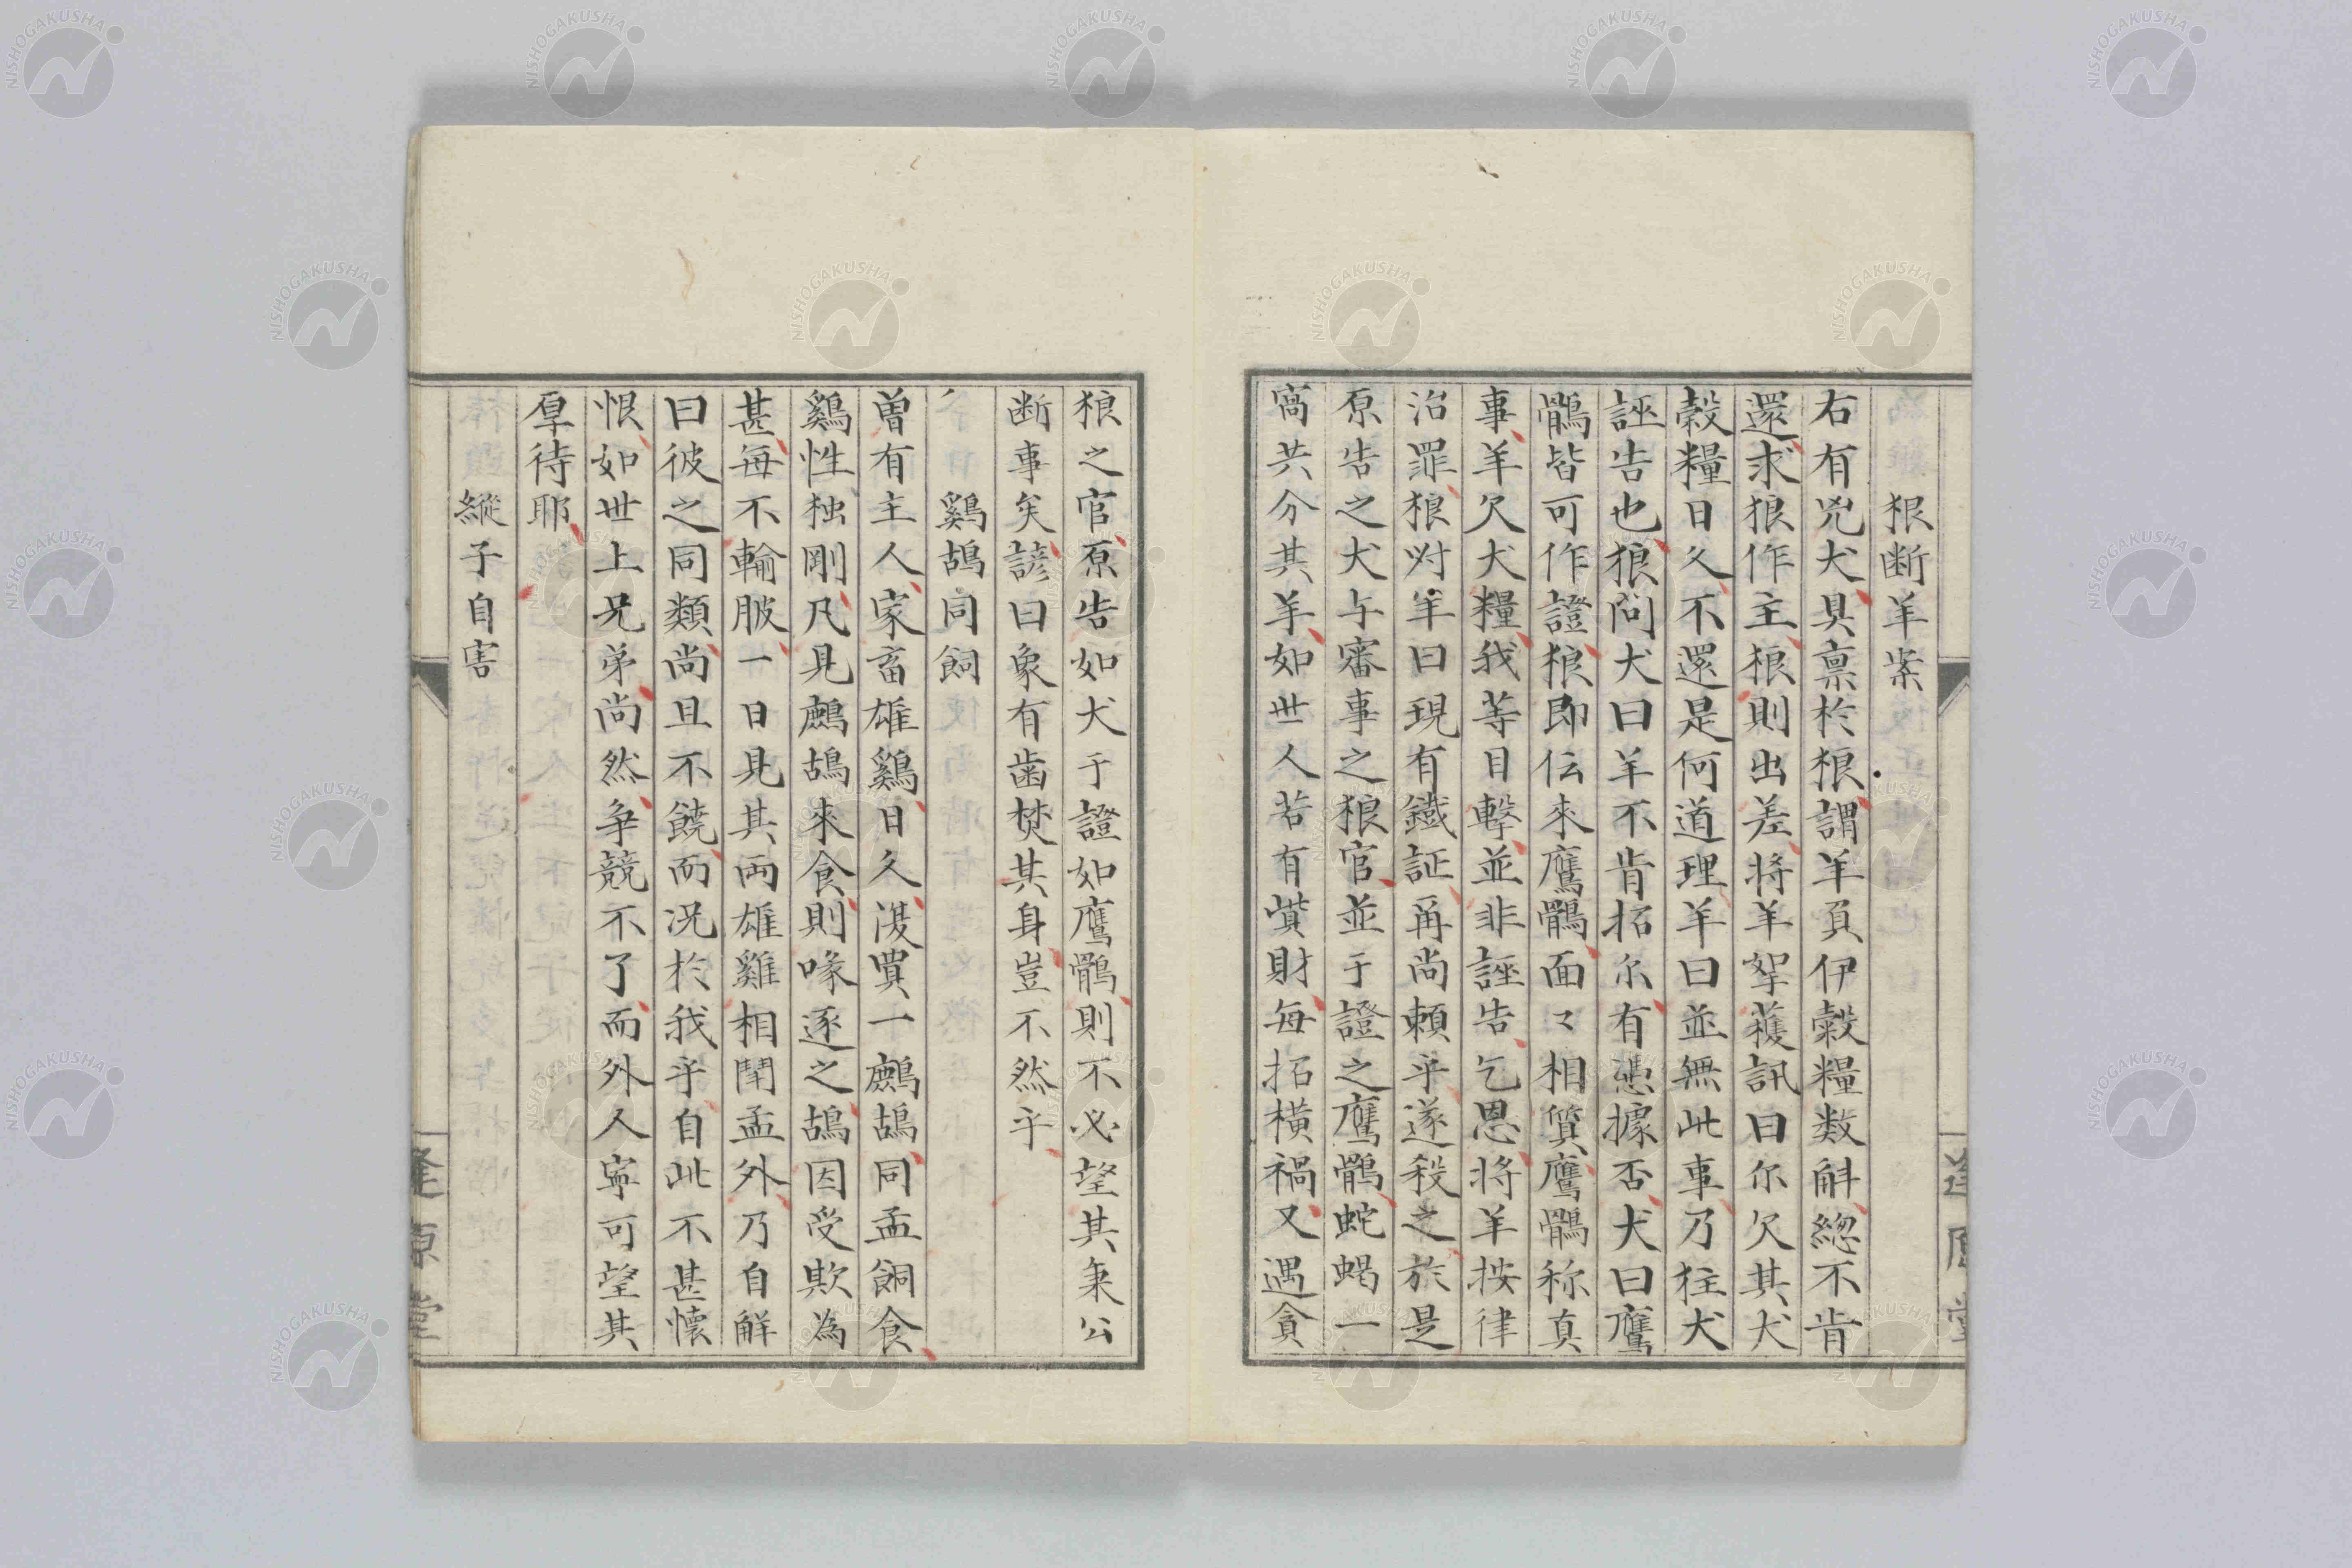 狼断羊案
右有兇犬具禀於狼謂羊負伊穀糧数斛総不肯
還求狼作主狼則出差将羊拏獲訊曰尓欠其犬
穀糧日久不還是何道理羊曰並無此事乃狂犬
誣告也狼问犬曰羊不肯招尓有憑據否犬曰鷹
鶻皆可作證狼即伝來鷹鶻面々相質鷹鶻称真
事羊欠犬糧我等目擊並非誣告乞恩将羊按律
治罪狼对羊曰現有鐵証再尚頼乎遂殺之於是
原告之犬与審事之狼官並于證之鷹鶻蛇蝎一
窩共分其羊如世人若有貲財每招横禍又遇貪
狼之官原告如犬于證如鷹鶻則不必望其秉公
断事矣諺曰象有歯焚其身豈不然乎
鷄鴣同飼
曽有主人家畜雄鷄日久復買一鷓鴣同盂飼食
鷄性独剛凡見鷓鴣來食則喙逐之鴣因受欺為
甚每不輸服一日見其両雄雞相閗盂外乃自觧
曰彼之同類尚且不饒而况於我乎自此不甚懷
恨如世上兄弟尚然争競不了而外人寧可望其
厚待耶
縦子自害
逢原堂
逢原堂